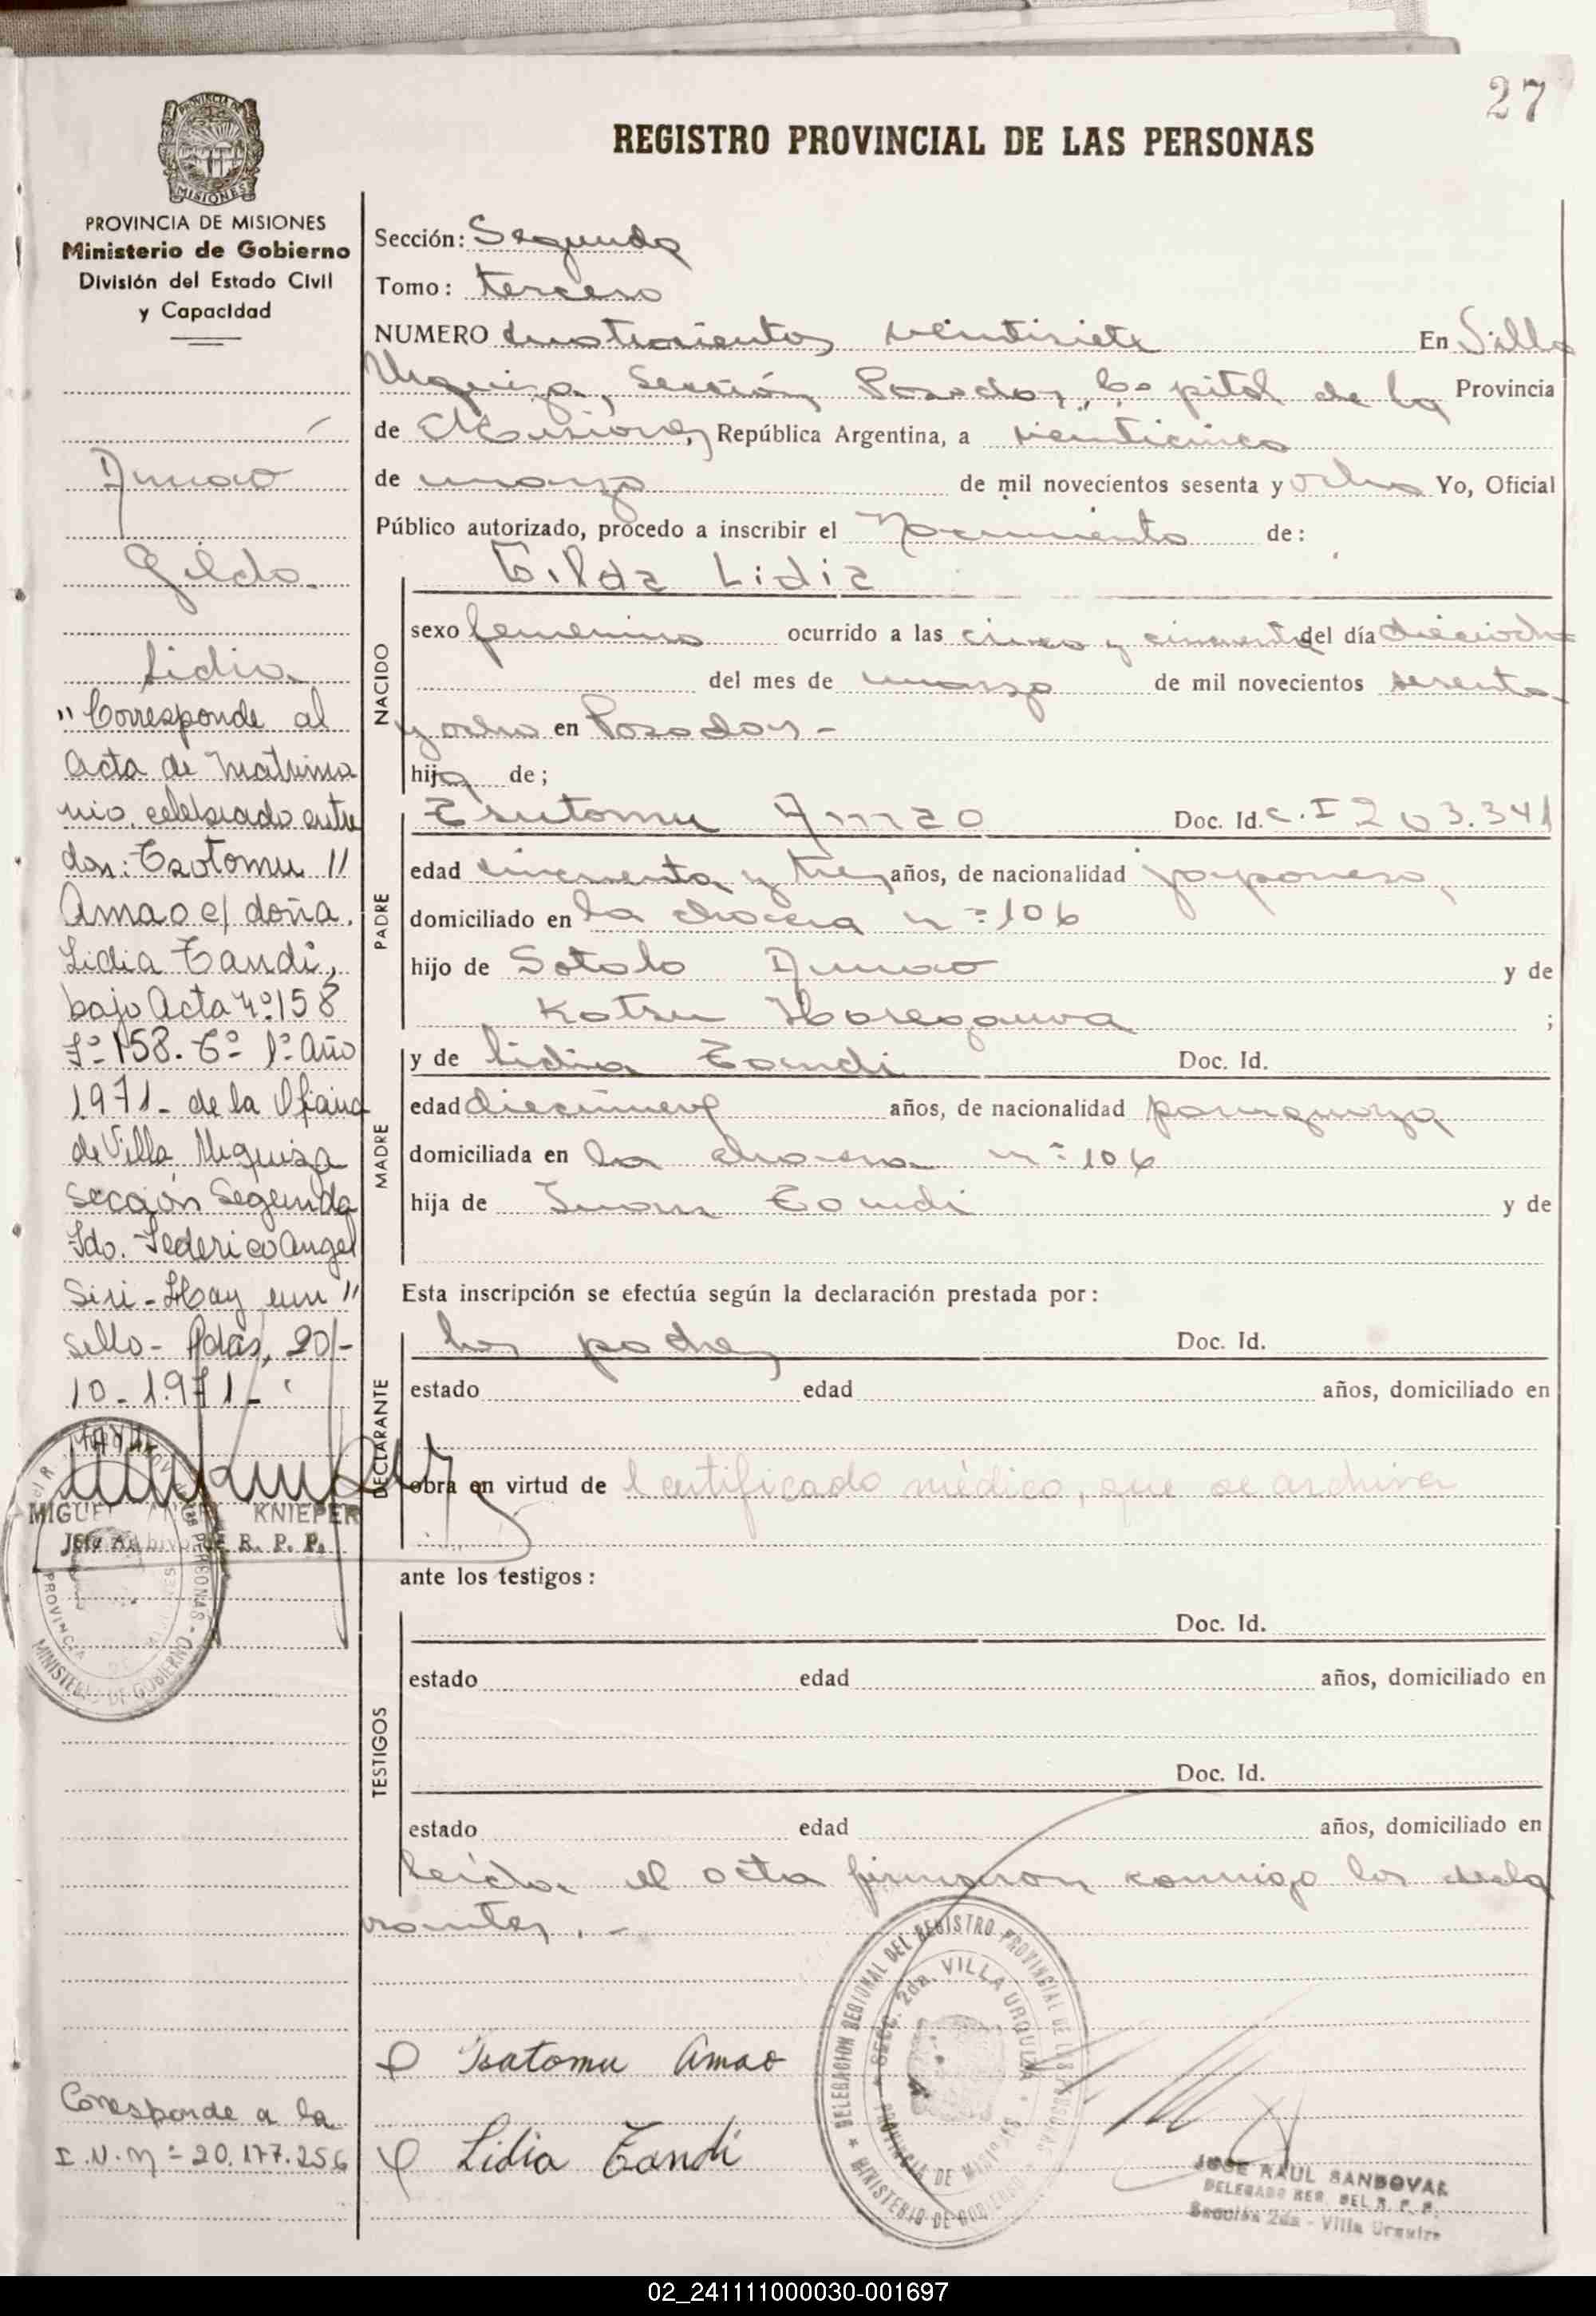 27
PROVINCIA DE MISIONES
REGISTRO PROVINCIAL DE LAS PERSONAS
PROVINCIA DE MISIONES
Ministerio de Gobierno
División del Estado Civil
y Capacidad
Amao
Gilda
Lidia
"Corresponde al
Acta de Matrimo
nio celebrado entre
don: Tsotomu "
Amao c/ doña
Lidia Tandi,
bajo Acta Nº 158
Fº 158. Tº 1º Año
1971- de la Oficina
de Villa Urquiza
Sección Segunda
Fdo. Federico Angel
Siri - Hay un "
sello - Pdas, 20/-
10-1971-
MIGUEL ANGEL KNIEPER
Jefe Archivo R. P. P.
PROVINCIA DE MISIONES
MINISTERIO DE GOBIERNO
Corresponde a la
I.N.Nº 20.177.256
Sección: Segunda
Tomo: tercero
NUMERO cuatrocientos veintisiete En Villa
Urquiza, Sección Posadas, Capital de la Provincia
de Misiones, República Argentina, a veinticinco
de marzo de mil novecientos sesenta y ocho Yo, Oficial
Público autorizado, procedo a inscribir el Nacimiento de:
NACIDO
Gilda Lidia
sexo femenino ocurrido a las cinco y cincuenta del día dieciocho
del mes de marzo de mil novecientos sesenta
y ocho en Posadas -
hija de;
PADRE
Tsutomu Amao Doc. Id. C.I 203.341
edad cincuenta y tres años, de nacionalidad japonesa,
domiciliado en la chacra nº 106
hijo de Amao y de
Katsu ;
MADRE
y de Lidia Tandi Doc. Id.
edad diecinueve años, de nacionalidad paraguaya
domiciliada en la chacra nº 106
hija de Juana Tandi y de
Esta inscripción se efectúa según la declaración prestada por:
DECLARANTE
los padres Doc. Id.
estado edad años, domiciliado en
obra en virtud de l certificado médico, que se archiva
ante los testigos:
TESTIGOS
Doc. Id.
estado edad años, domiciliado en
Doc. Id.
estado edad años, domiciliado en
leída el acta firmaron conmigo los decla
rantes. -
DELEGACION REGIONAL DEL REGISTRO PROVINCIAL DE LAS PERSONAS
SECC. 2da. VILLA URQUIZA
PROVINCIA DE MISIONES
MINISTERIO DE GOBIERNO
Tsatomu Amao
Lidia Tandi
JOSE RAUL SANDOVAL
DELEGADO REG. DEL R. P. P.
Sección 2da - Villa Urquiza
02_241111000030-001697